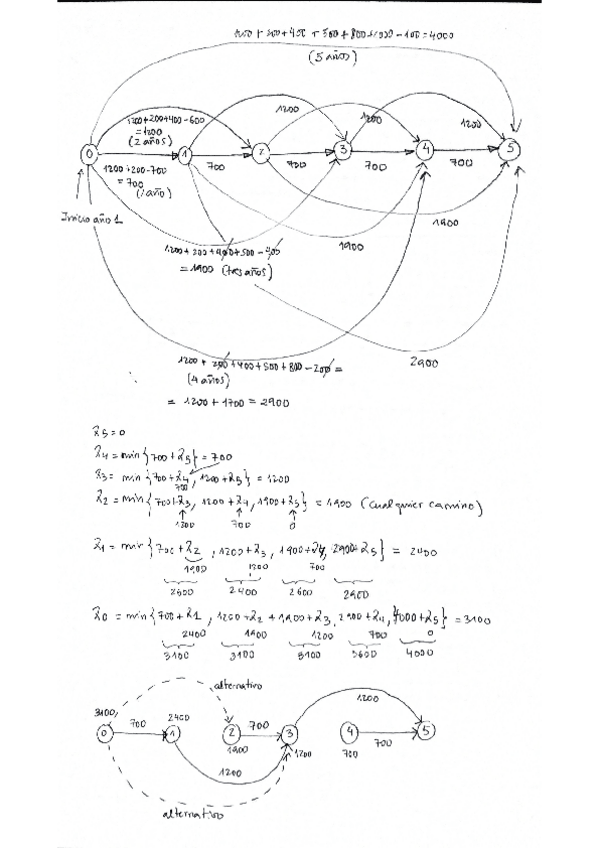 1200 + 200 + 400 + 500 + 800 + 1000 - 100 = 4000
(5 años)
1200+200+400-600
= 1200
(2 años)
1200 1200 1200
0 1 2 3 4 5
700 700 700 700
1200 + 200 - 700
= 700
(1 año)
Inicio año 1
1900
1900
1200 + 200 + 400 + 500 - 400
= 1900 (tres años)
2900
1200 + 200 + 400 + 500 + 800 - 200 =
(4 años)
= 1200 + 1700 = 2900
λ5 = 0
λ4 = min {700 + λ5} = 700
λ3 = min {700 + λ4, 1200 + λ5} = 1200
700
λ2 = min {700 + λ3, 1200 + λ4, 1900 + λ5} = 1900 (cualquier camino)
1200 700 0
λ1 = min {700 + λ2, 1200 + λ3, 1900 + λ4, 2900 + λ5} = 2400
1900 1200 700
2600 2400 2600 2900
λ0 = min {700 + λ1, 1200 + λ2 + 1900 + λ3, 2900 + λ4, 4000 + λ5} = 3100
2400 1900 1200 700 0
3100 3100 3100 3600 4000
alternativo
1200
3100 700 2400 700
0 1 2 3 4 5
1900 1200 700 700
1200
alternativo